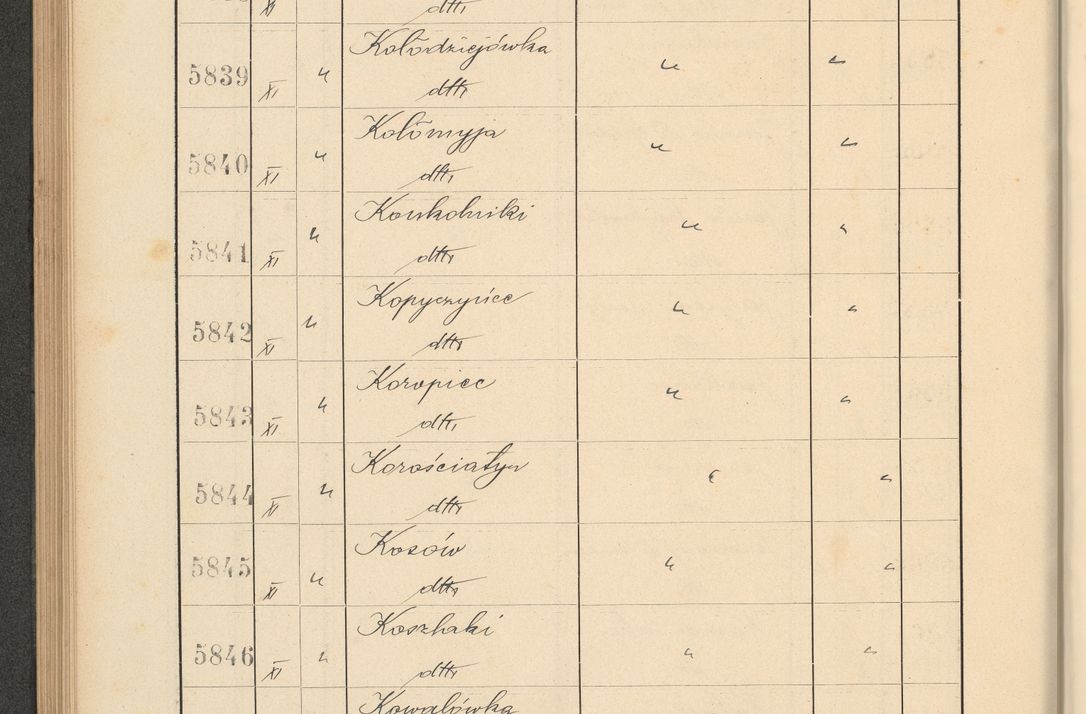 XI dtto
Kołodziejówka
5839 XI " " "
dtto
Kołomyja
5840 XI " " "
dtto
Konkolniki
5841 XI " " "
dtto
Kopyczyńce
5842 XI " " "
dtto
Koropiec
5843 XI " " "
dtto
Korościatyn
5844 XI " " "
dtto
Kosów
5845 XI " " "
dtto
Koszlaki
5846 XI " " "
dtto
Kowalówka